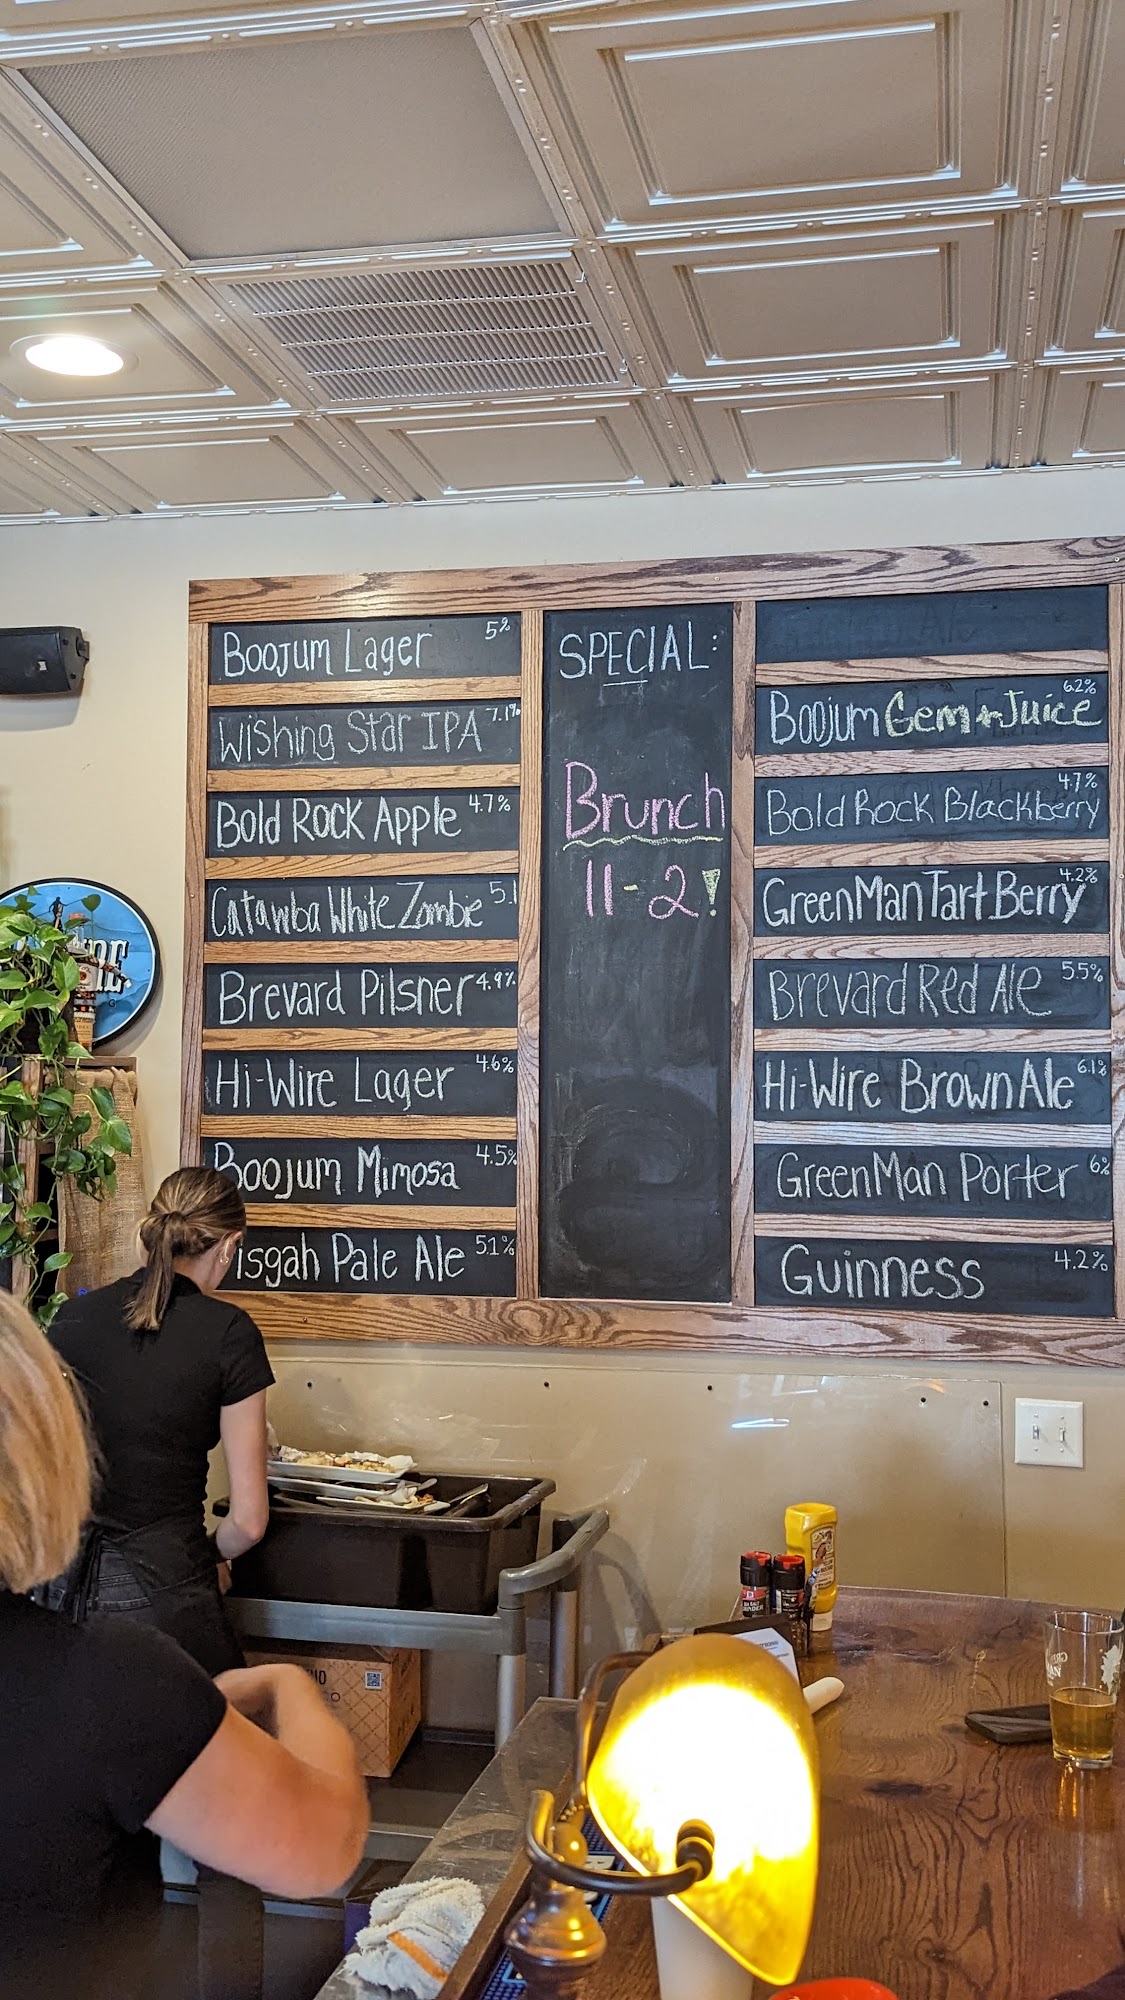 Boojum Lager 5%
Wishing Star IPA 7.1%
Bold Rock Apple 4.7%
Catawba White Zombie 5.1
Brevard Pilsner 4.9%
Hi-Wire Lager 4.6%
Boojum Mimosa 4.5%
isgah Pale Ale 5.1%
SPECIAL:
Brunch
11-2!
Boojum Gem + Juice 6.2%
Bold Rock Blackberry 4.7%
GreenMan Tart Berry 4.2%
Brevard Red Ale 5.5%
Hi-Wire Brown Ale 6.1%
GreenMan Porter 6%
Guinness 4.2%